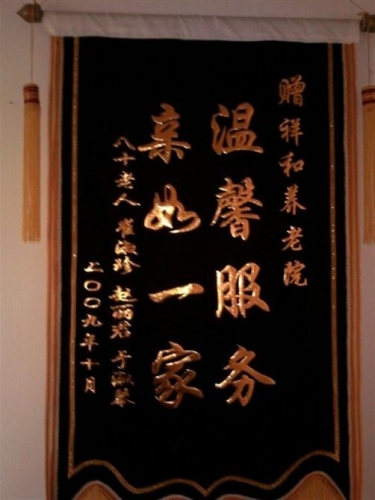 赠祥和养老院
温馨服务
亲如一家
八十老人 崔淑珍 赵丽君 于淑琴
二〇〇九年十月